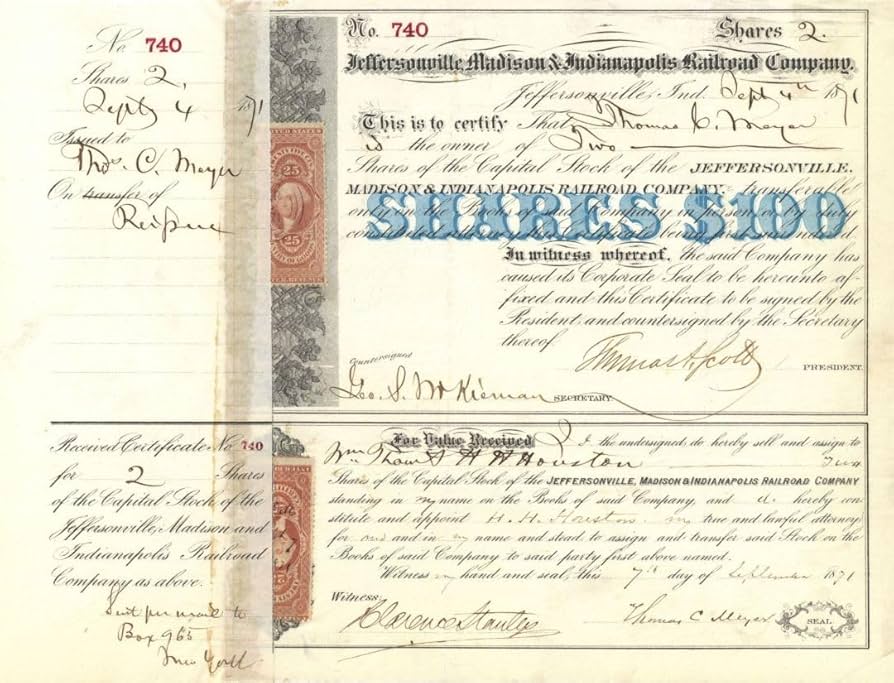 No 740
Shares 2,
Sept 4 1871
Issued to
Thos. C. Meyer
On transfer of
Reissue
No. 740 Shares 2.
Jeffersonville Madison & Indianapolis Railroad Company.
Jeffersonville, Ind. Sept 4th 1871
This is to certify That Thomas C. Meyer
is the owner of Two
Shares of the Capital Stock of the JEFFERSONVILLE,
MADISON & INDIANAPOLIS RAILROAD COMPANY, transferable
only on the Books of said Company in person or by duly
SHARES $100
In witness whereof, the said Company has
caused its Corporate Seal to be hereunto af-
fixed and this Certificate to be signed by the
President and countersigned by the Secretary
thereof
Thomas A. Scott PRESIDENT.
Countersigned
Geo. S. McKiernan SECRETARY.
25
25
Received Certificate No 740
for 2 Shares
of the Capital Stock of the
Jeffersonville, Madison and
Indianapolis Railroad
Company as above.
Sent per mail to
Box 965
New York
For Value Received I the undersigned, do hereby sell and assign to
H H Houston Two
Shares of the Capital Stock of the JEFFERSONVILLE, MADISON & INDIANAPOLIS RAILROAD COMPANY
standing in my name on the Books of said Company, and do hereby con-
stitute and appoint H. H. Houston my true and lawful attorney
for me and in my name and stead to assign and transfer said Stock on the
Books of said Company to said party first above named.
Witness my hand and seal, this 7th day of September 1871
Witness:
Clarence Stanley Thomas C Meyer SEAL